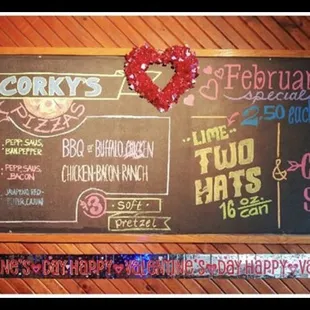 CORKY'S
PIZZAS
PEPP, SAUS,
BAN.PEPPER
PEPP, SAUS,
BACON
JALAPENO, RED-
PEPPER, CAJUN
BBQ OR BUFFALO CHICKEN
CHICKEN-BACON-RANCH
3 SOFT
pretzel
Februar
special
2.50 each
LIME
TWO
HATS
16 oz
can
&
NE'S DAY HAPPY VALENTINE'S DAY HAPPY VA